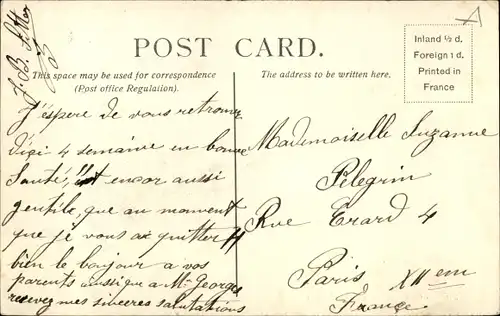 POST CARD.
Inland ½ d.
Foreign 1 d.
Printed in
France
This space may be used for correspondence
(Post office Regulation).
The address to be written here.
J'éspere de vous retrouvez
d'ici 4 semaine en bonne
Santé, et encor aussi
gentile, que au moment
que je vous ai quitter
bien le bonjour a vos
parents aussi que a Mr Georges
recevez mes sinceres salutations
Mademoiselle Suzanne
Pelegrin
Rue Erard 4
Paris XII em
France